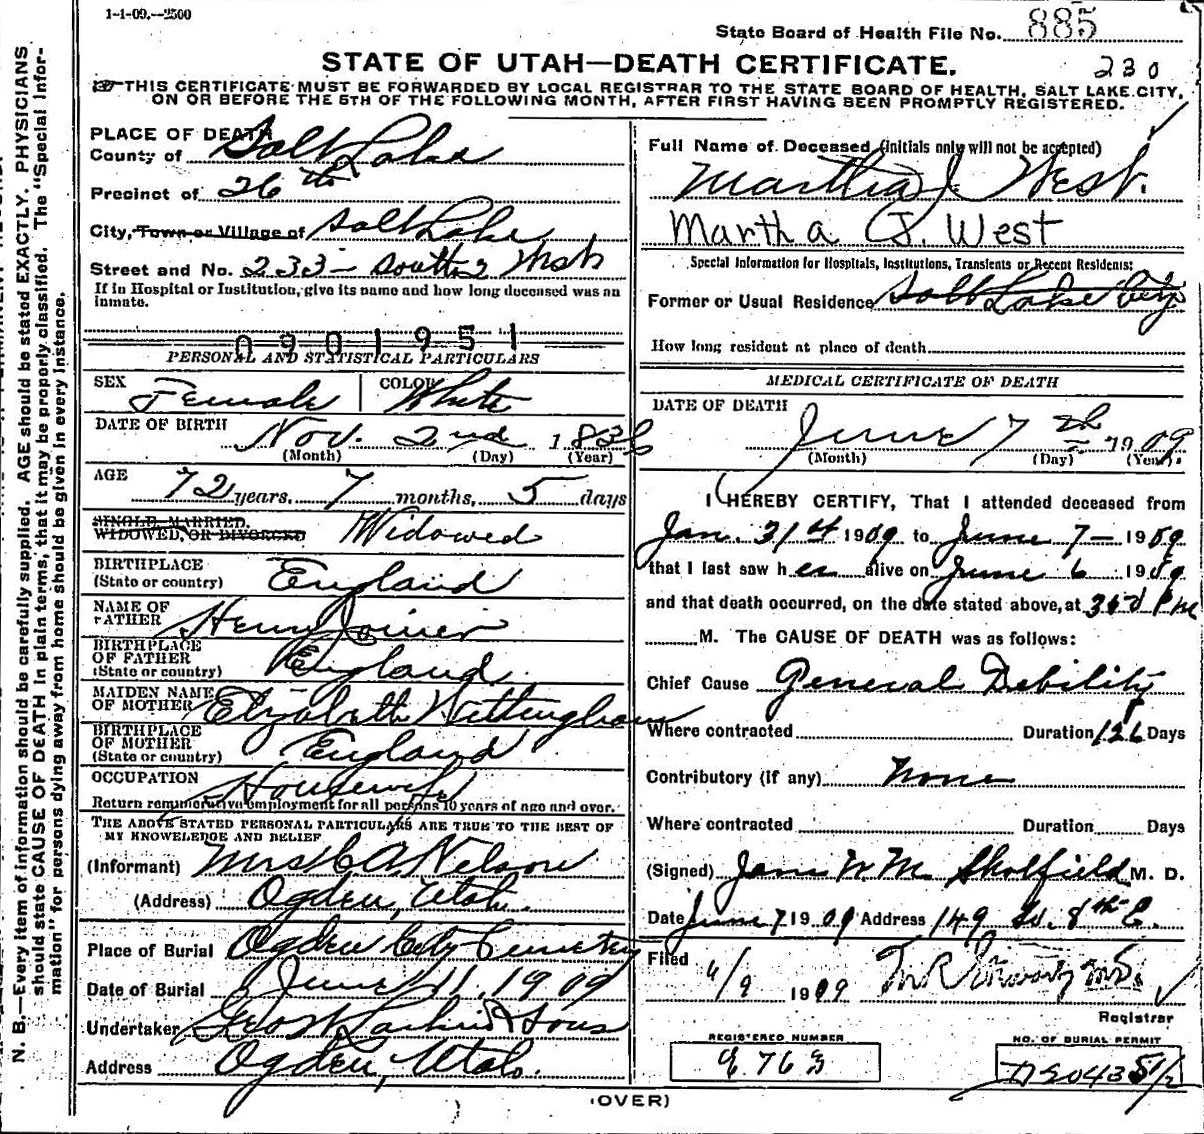 1-1-09.--2500
State Board of Health File No. 885
STATE OF UTAH—DEATH CERTIFICATE.
230
THIS CERTIFICATE MUST BE FORWARDED BY LOCAL REGISTRAR TO THE STATE BOARD OF HEALTH, SALT LAKE CITY,
ON OR BEFORE THE 5TH OF THE FOLLOWING MONTH, AFTER FIRST HAVING BEEN PROMPTLY REGISTERED.
N. B.—Every item of information should be carefully supplied. AGE should be stated EXACTLY. PHYSICIANS
should state CAUSE OF DEATH in plain terms, that it may be properly classified. The "Special Infor-
mation" for persons dying away from home should be given in every instance.
PLACE OF DEATH
County of Salt Lake
Precinct of 26th
City, Town or Village of Salt Lake
Street and No. 233- South 2 West
If in Hospital or Institution, give its name and how long deceased was an
inmate.
0901951
PERSONAL AND STATISTICAL PARTICULARS
SEX Female COLOR White
DATE OF BIRTH Nov. 2nd 1836
(Month) (Day) (Year)
AGE 72 years, 7 months, 5 days
SINGLE, MARRIED,
WIDOWED, OR DIVORCED Widowed
BIRTHPLACE
(State or country) England
NAME OF
FATHER Henry Joiner
BIRTHPLACE
OF FATHER
(State or country) England
MAIDEN NAME
OF MOTHER Elizabeth Wittingham
BIRTHPLACE
OF MOTHER
(State or country) England
OCCUPATION Housewife
Return remunerative employment for all persons 10 years of age and over.
THE ABOVE STATED PERSONAL PARTICULARS ARE TRUE TO THE BEST OF
MY KNOWELEDGE AND BELIEF
(Informant) Mrs C. A. Nelson
(Address) Ogden, Utah.
Place of Burial Ogden City Cemetery
Date of Burial June 11, 1909
Undertaker Geo W Larkin & Sons
Address Ogden, Utah.
Full Name of Deceased (initials only will not be accepted)
Martha J West.
Martha J. West
Special Information for Hospitals, Institutions, Transients or Recent Residents:
Former or Usual Residence Salt Lake City
How long resident at place of death
MEDICAL CERTIFICATE OF DEATH
DATE OF DEATH
June 7th 1909
(Month) (Day) (Year)
I HEREBY CERTIFY, That I attended deceased from
Jan. 31st 1909 to June 7- 1909
that I last saw her alive on June 6 1909
and that death occurred, on the date stated above, at Pm
M. The CAUSE OF DEATH was as follows:
Chief Cause General Debility
Where contracted Duration 126 Days
Contributory (if any) None
Where contracted Duration Days
(Signed) Wm M. D.
Date June 7 1909 Address 149 So. 8th E.
Filed 6/9 1909
Registrar
REGISTERED NUMBER
NO. OF BURIAL PERMIT
(OVER)